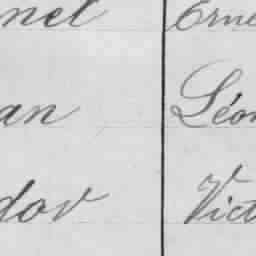 nel Erne
an Léon
dov Vict